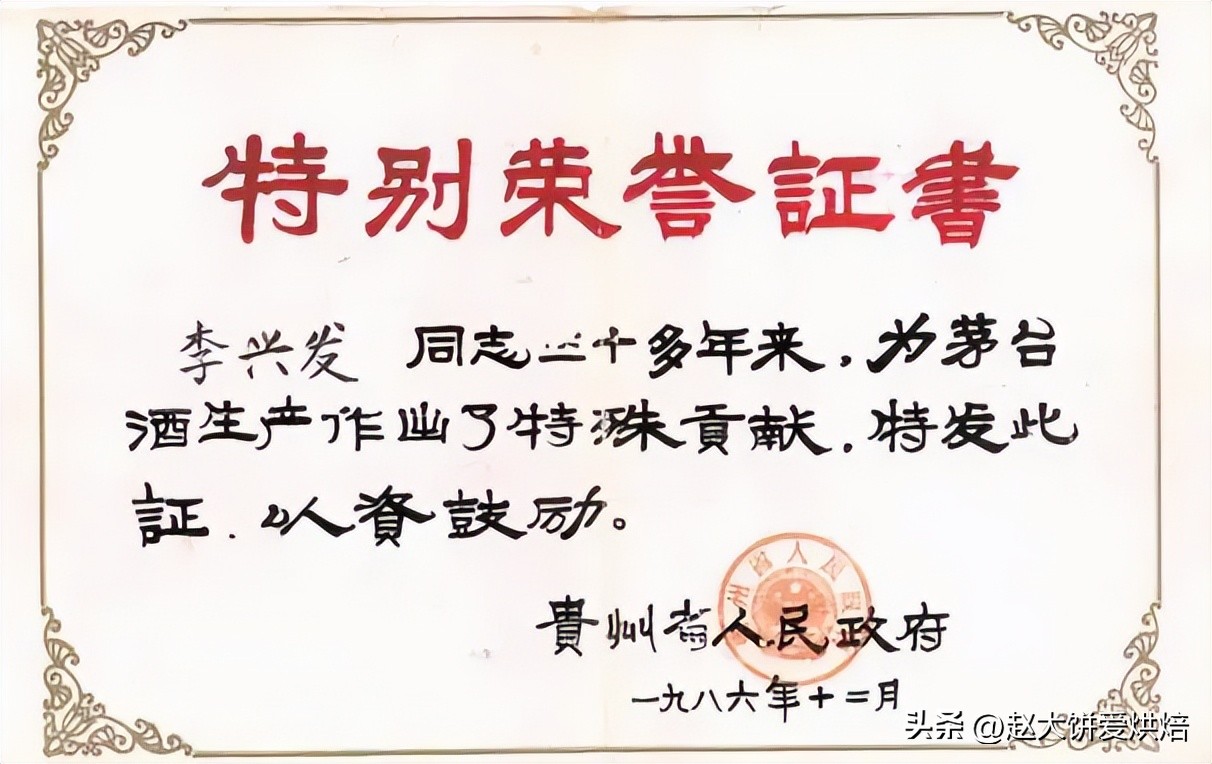 特别荣誉証書
李兴发 同志三十多年来,为茅台
酒生产作出了特殊貢献,特发此
証,以资鼓励。
貴州省人民政府
一九八六年十二月
头条 @赵大饼爱烘焙